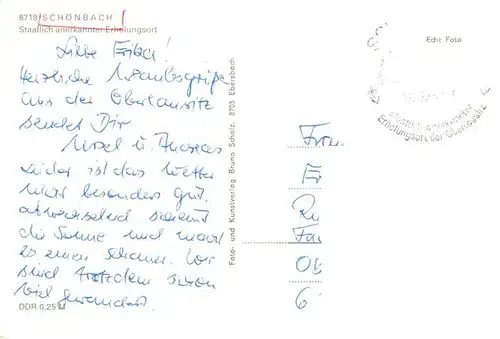 8718 SCHÖNBACH
Staatlich anerkannter Erholungsort
Liebe Erika!
Herzliche Urlaubsgrüße
aus der Oberlausitz
sendet Dir
Ursel u. Andreas
Leider ist das Wetter
nicht besonders gut.
abwechselnd scheint
die Sonne und mal
ein Schauer. Wir
sind trotzdem schon
viel gewandert.
DDR 0,25 M
Foto- und Kunstverlag Bruno Scholz, 8705 Ebersbach
Echt Foto
Staatlich anerkannter
Erholungsort der Oberlausitz
Frau
Er
Ru
Ob
6